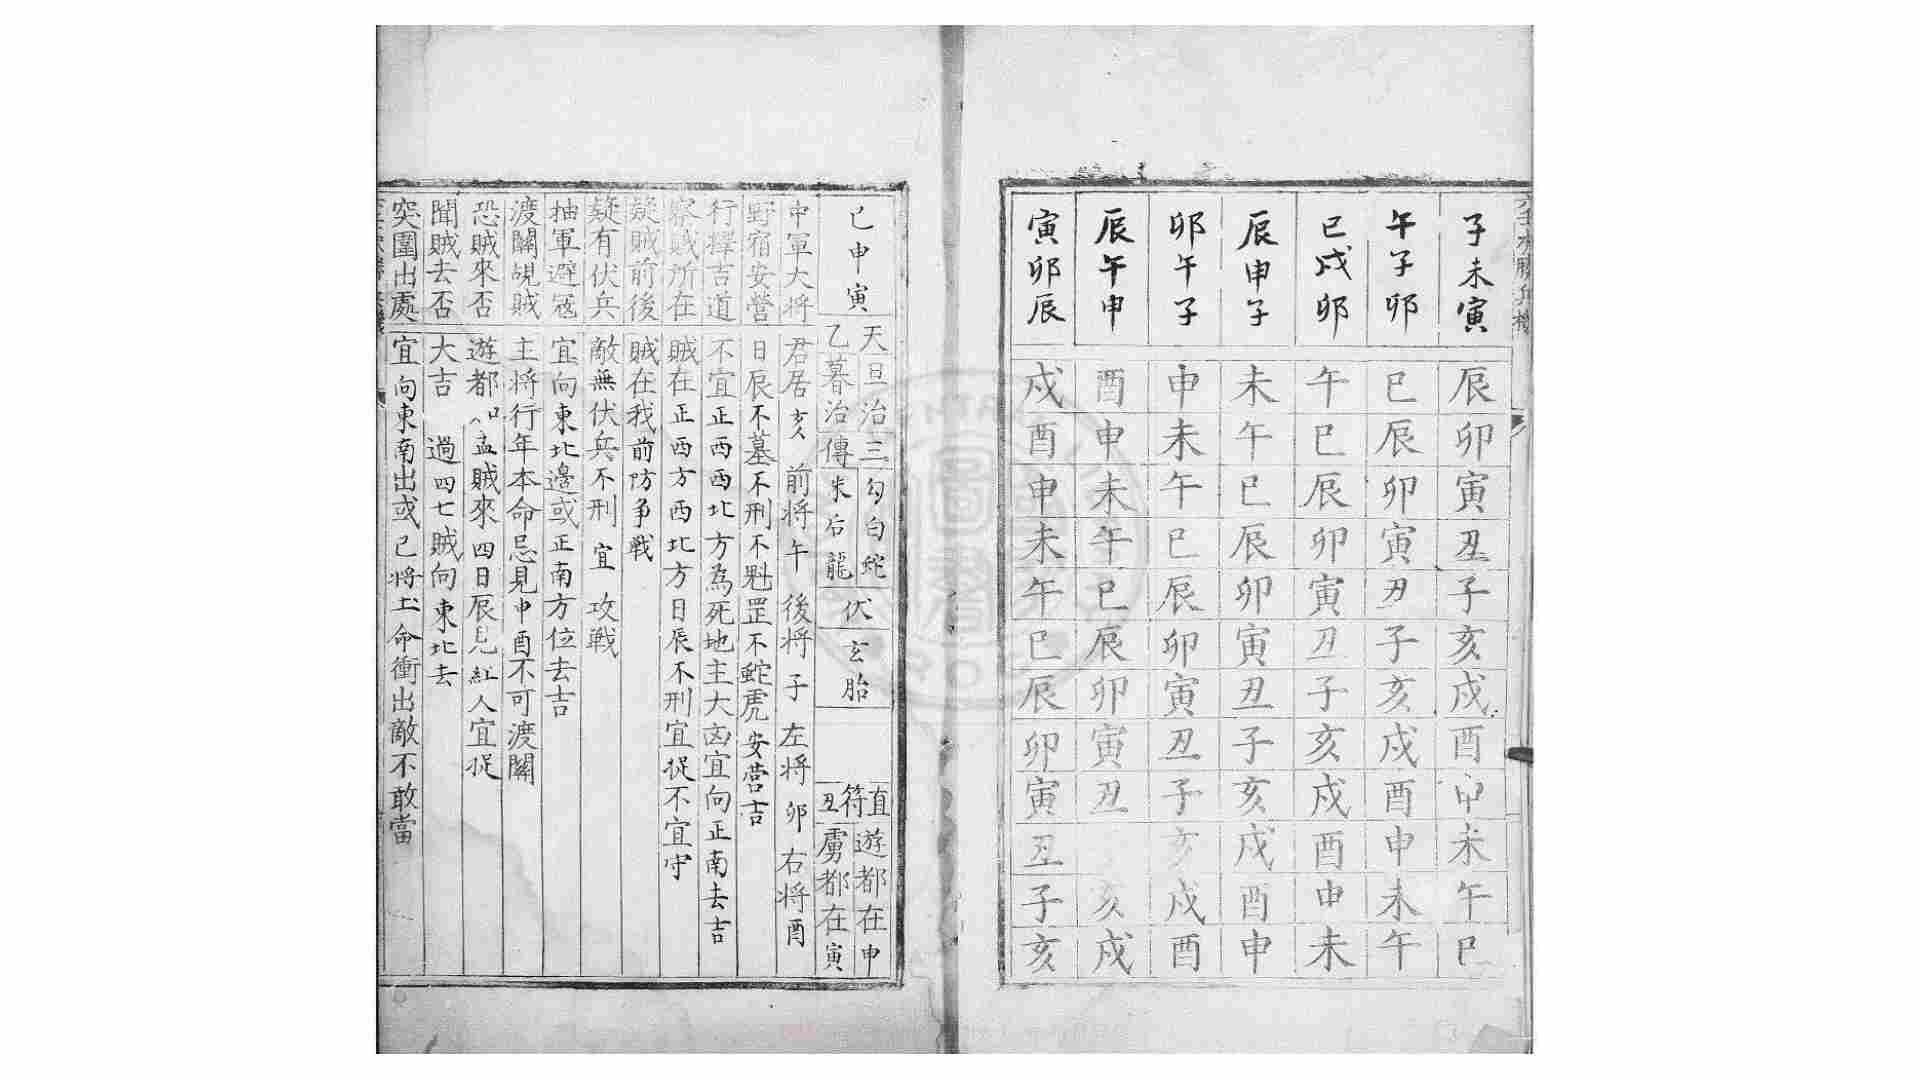 子未寅 辰卯寅丑子亥戌酉申未午巳
午子卯 巳辰卯寅丑子亥戌酉申未午
巳戌卯 午巳辰卯寅丑子亥戌酉申未
辰申子 未午巳辰卯寅丑子亥戌酉申
卯午子 申未午巳辰卯寅丑子亥戌酉
辰午申 酉申未午巳辰卯寅丑亥戌
寅卯辰 戌酉申未午巳辰卯寅丑子亥
巳申寅
天旦治
乙暮治
三傳
勾白蛇
朱后龍
伏
玄胎
直符丑
遊都在申
虜都在寅
中軍大將 君居亥 前將午 後將子 左將卯 右將酉
野宿安營 日辰不墓不刑不魁罡不蛇虎安营吉
行擇吉道 不宜正西西北方為死地主大凶宜向正南去吉
察賊所在 賊在正西方西北方日辰不刑宜捉不宜守
疑賊前後 賊在我前防爭戰
疑有伏兵 敵無伏兵不刑宜攻戰
抽軍避寇 宜向東北邊或正南方位去吉
渡關覘賊 主將行年本命忌見申酉不可渡關
恐賊來否 遊都加孟賊來四日辰見紅人宜捉
聞賊去否 大吉過四七賊向東北去
突圍出處 宜向東南出或巳將土命衝出敵不敢當